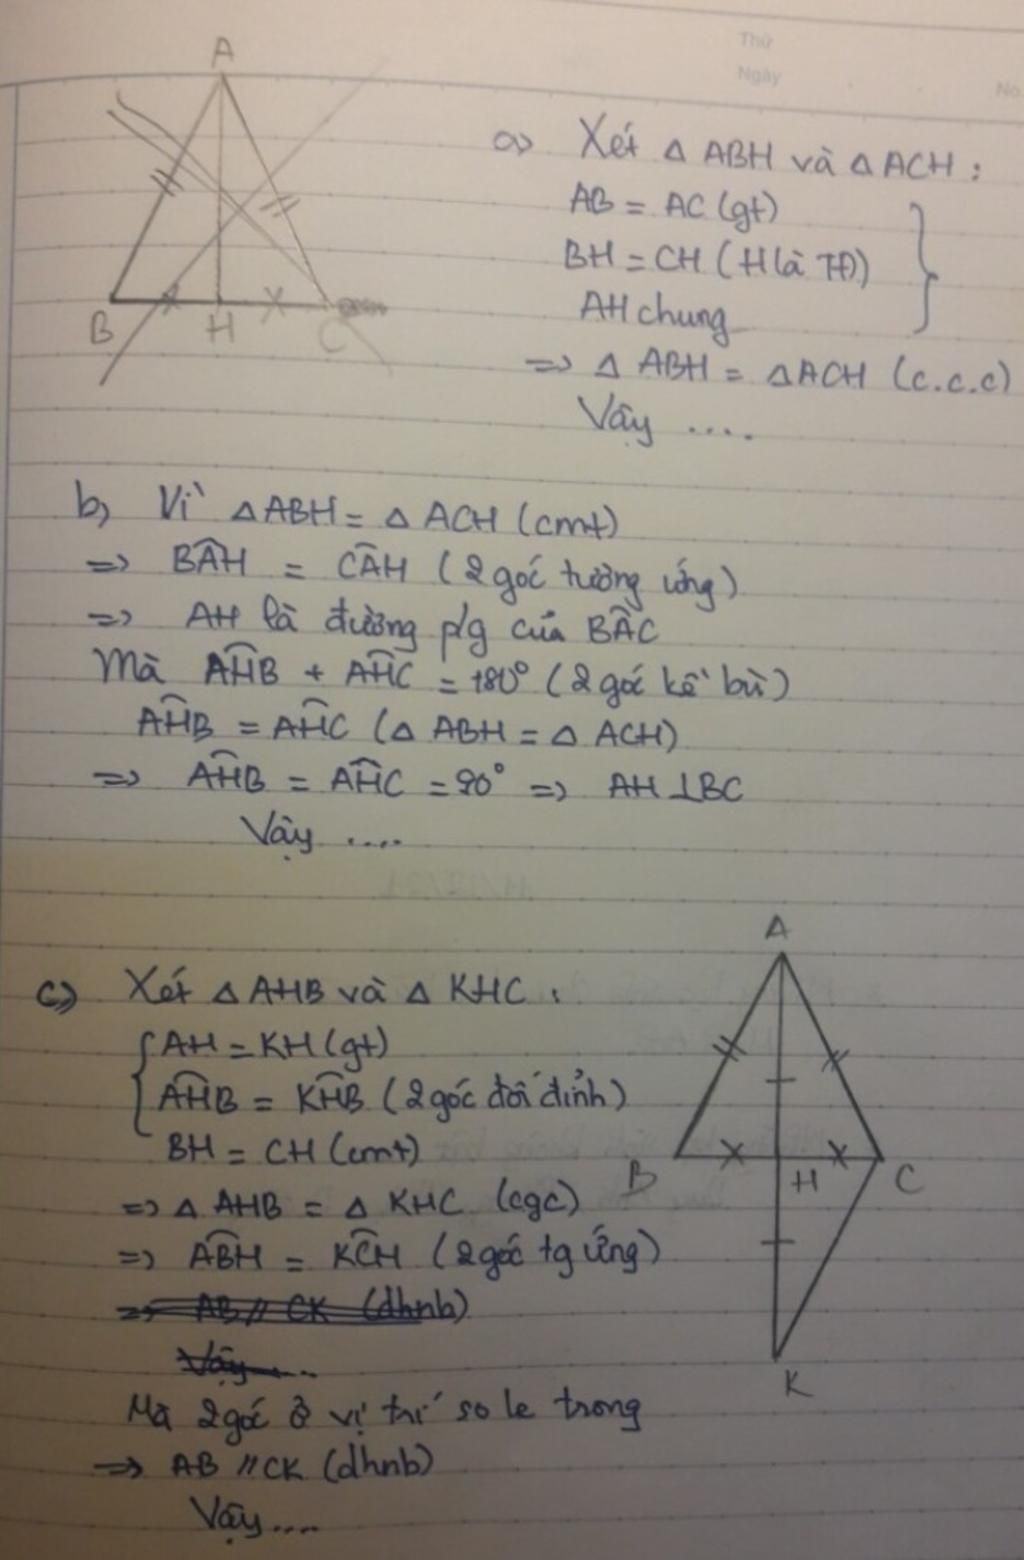 Thứ
Ngày
No.
A
B
H
C
a) Xét Δ ABH và Δ ACH :
AB = AC (gt)
BH = CH (H là TĐ)
AH chung
=> Δ ABH = Δ ACH (c.c.c)
Vậy ....
b) Vì Δ ABH = Δ ACH (cmt)
=> BÂH = CÂH (2 góc tường ứng)
=> AH là đường p/g của BÂC
Mà AĤB + AĤC = 180° (2 góc kề bù)
AĤB = AĤC (Δ ABH = Δ ACH)
=> AĤB = AĤC = 90° => AH ⊥ BC
Vậy ....
c) Xét Δ AHB và Δ KHC :
AH = KH (gt)
AĤB = KĤB (2 góc đối đỉnh)
BH = CH (cmt)
=> Δ AHB = Δ KHC (cgc)
=> AB̂H = KĈH (2 góc tg ứng)
=> AB // CK (dhnb)
Vậy ...
Mà 2 góc ở vị trí so le trong
=> AB // CK (dhnb)
Vậy ....
A
B
H
C
K